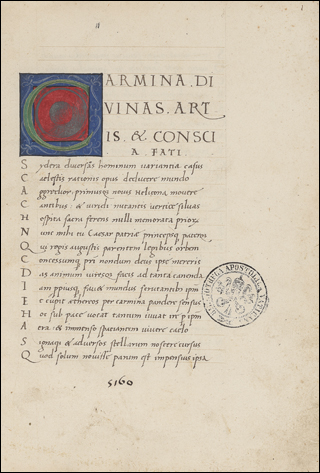 CARMINA . DI
VINAS . ART
IS . & CONSCI
A . FATI .
Sydera diversas hominum variantia casus
Caelestis rationis opus deducere mundo
Aggredior: primusque novis Helicona movere
Cantibus: & viridi nutantis vertice silvas
Hospita sacra ferens nulli memorata priorum
Nunc mihi tu Caesar patriae princepsque paterque
Qui regis augustis parentem legibus orbem
Concessumque patri mundum deus ipse mereris
Das animum viresque facis ad tanta canenda
Iam propiusque favet mundus scrutantibus ipsum
Et cupit aethereos per carmina pandere census
Hoc sub pace vocat tantum iuvat ire per ipsum
Aera: & immenso spatiantem vivere caelo
Signaque & adversos stellarum noscere cursus
Quod solum novisse parum est impensius ipsa
5160
BIBLIOTHECA APOSTOLICA VATICANA